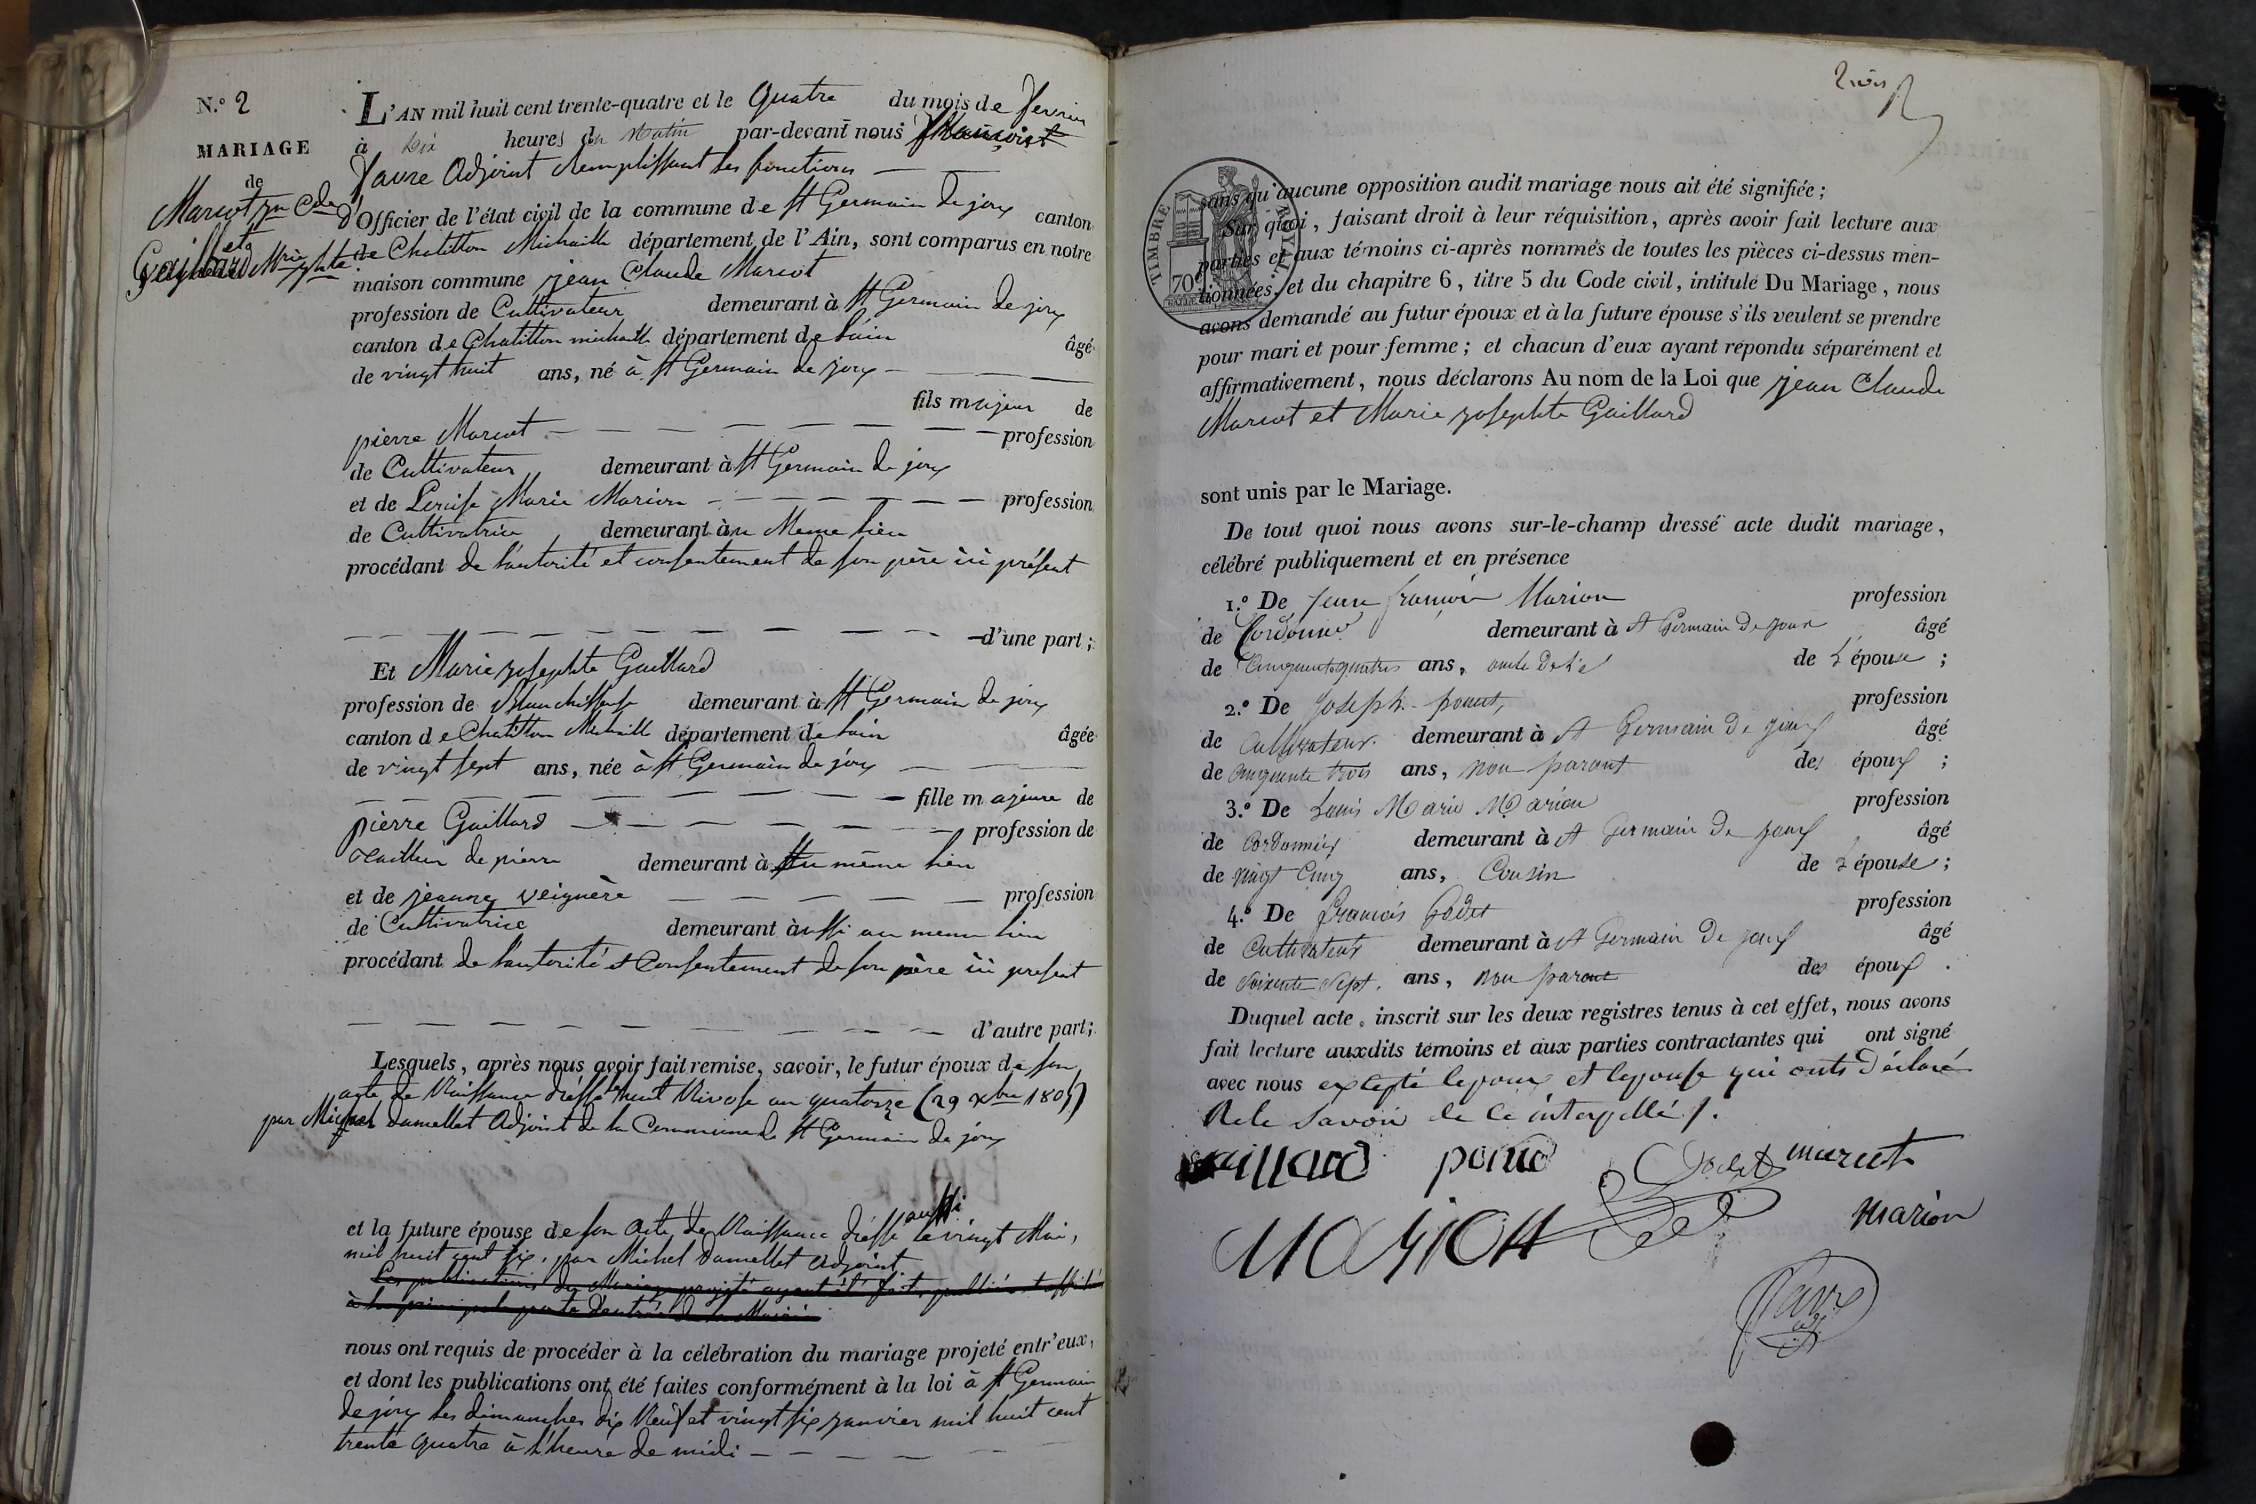 N.º 2
MARIAGE
de
Marcot jn Cde
et
Gaillard Mrie jphte
L'AN mil huit cent trente-quatre et le Quatre du mois de fevrier
à Dix heures du Matin par-devant nous françois
favre Adjoint Remplissant les fonctions
d'Officier de l'état civil de la commune de St Germain de joux canton
de Chatillon Michaille département de l'Ain, sont comparus en notre
maison commune jean Claude Marcot
profession de Cultivateur demeurant à St Germain de joux
canton de Chatillon michaille département de l'ain âgé
de vingt huit ans, né à St Germain de joux
fils majeur de
pierre Marcot profession
de Cultivateur demeurant à St Germain de joux
et de Louise Marie Marion profession
de Cultivatrice demeurant àu Meme lieu
procédant de l'autorité et consentement de son père ici présent
d'une part;
Et Marie josephte Gaillard
profession de Blanchisseuse demeurant à St Germain de joux
canton de Chatillon Michaille département de l'ain âgée
de vingt sept ans, née à St Germain de joux
fille majeure de
pierre Gaillard profession de
tailleur de pierre demeurant à au même lieu
et de jeanne veignère profession
de Cultivatrice demeurant àussi au meme lieu
procédant de l'autorité et Consentement de son père ici present
d'autre part;
Lesquels, après nous avoir fait remise, savoir, le futur époux de son
acte de Naissance dréssé le huit Nivose an quatorze (29 xbre 1805)
par Michel Damellet Adjoint de la Commune de St Germain de joux
et la future épouse de son Acte de Naissance dréssé aussi le vingt Mai,
mil huit cent six, par Michel Damellet Adjoint
Les publications du Mariage projeté ayant été faites, publiées et affichées
à la principale porte d'entrée de la Mairie
nous ont requis de procéder à la célébration du mariage projeté entr'eux,
et dont les publications ont été faites conformément à la loi à St Germain
de joux les dimanches dix Neuf et vingt six janvier mil huit cent
trente quatre à l'heure de midi
TIMBRE ROYAL
70c
sans qu'aucune opposition audit mariage nous ait été signifiée;
Sur quoi, faisant droit à leur réquisition, après avoir fait lecture aux
parties et aux témoins ci-après nommés de toutes les pièces ci-dessus men-
tionnées, et du chapitre 6, titre 5 du Code civil, intitulé Du Mariage, nous
avons demandé au futur époux et à la future épouse s'ils veulent se prendre
pour mari et pour femme; et chacun d'eux ayant répondu séparément et
affirmativement, nous déclarons Au nom de la Loi que jean Claude
Marcot et Marie josephte Gaillard
sont unis par le Mariage.
De tout quoi nous avons sur-le-champ dressé acte dudit mariage,
célébré publiquement et en présence
1.º De Jean françois Marion profession
de Cordonnier demeurant à St Germain De joux âgé
de Cinquantequatre ans, oncle de l'épouse;
2.º De Joseph poncet, profession
de cultivateur demeurant à St Germain De joux âgé
de cinquante trois ans, non parant des époux;
3.º De Louis Marie Marion profession
de Cordonnier demeurant à St Germain De joux âgé
de vingt Cinq ans, Cousin de L'épouse;
4.º De françois Godet profession
de Cultivateur demeurant à St Germain De joux âgé
de Soixente Sept. ans, non parant des époux.
Duquel acte, inscrit sur les deux registres tenus à cet effet, nous avons
fait lecture auxdits témoins et aux parties contractantes qui ont signé
avec nous excepté lepoux et lepouse qui onts Déclaré
Ne le Savoir de Ce interpellés.
Gaillard Godet marcot
MARION marion
favre